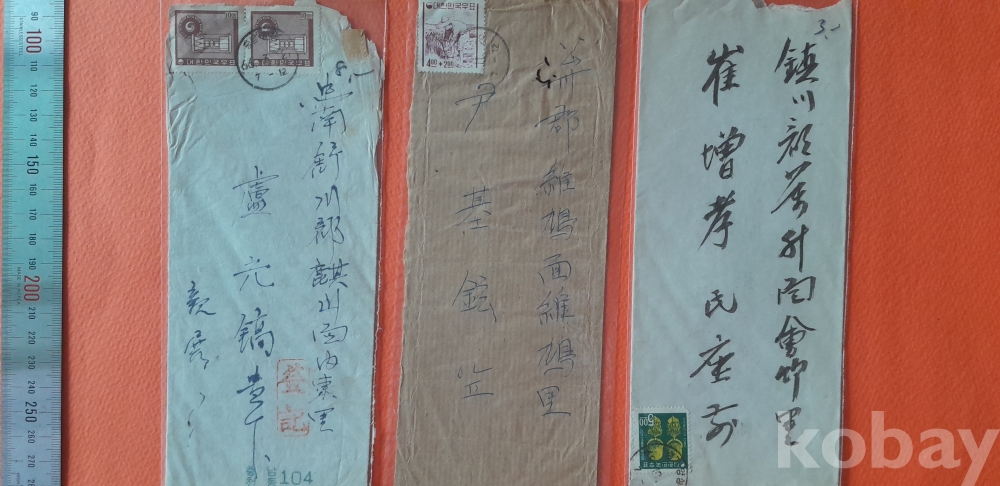 忠南舒川郡麒山面內東里
盧元鎬
親展
登記
104
대한민국우표
10.00
10.00
維鳩面維鳩里
尹基鉉
대한민국우표
4.00+2.00
鎮川郡萬升面會竹里
崔增孝氏座前
대한민국우표
5.00
kobay
90
100
110
120
130
140
150
160
170
180
190
200
210
220
230
240
250
260
270